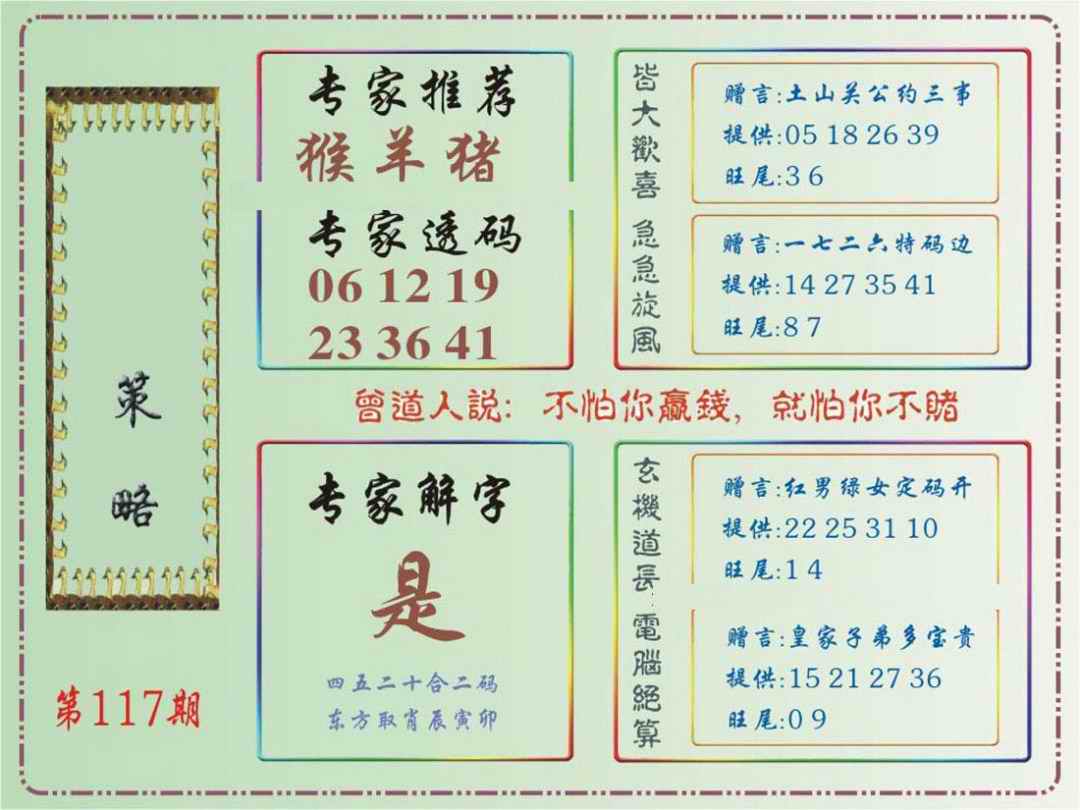 策略
第117期
专家推荐
猴羊猪
专家透码
06 12 19
23 36 41
皆大歡喜
赠言:土山关公约三事
提供:05 18 26 39
旺尾:3 6
急急旋風
赠言:一七二六特码边
提供:14 27 35 41
旺尾:8 7
曾道人説: 不怕你贏錢, 就怕你不賭
专家解字
是
四五二十合二码
东方取肖辰寅卯
玄機道長
赠言:红男绿女定码开
提供:22 25 31 10
旺尾:1 4
電腦絕算
赠言:皇家子弟多宝贵
提供:15 21 27 36
旺尾:0 9